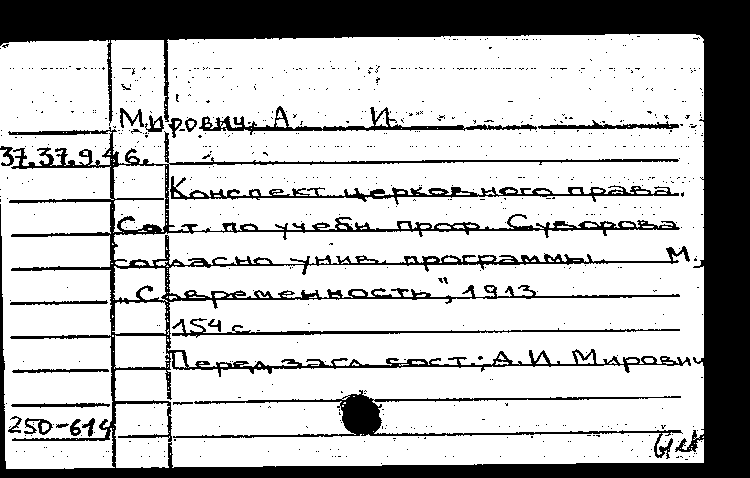 Мирович, А. И.
37.37.9.46.
Конспект церковного права.
Сост. по учебн. проф. Суворова
согласно унив. программы. М.,
„Современность", 1913
154 с.
Перед загл. сост.: А.И. Мирович
250-614